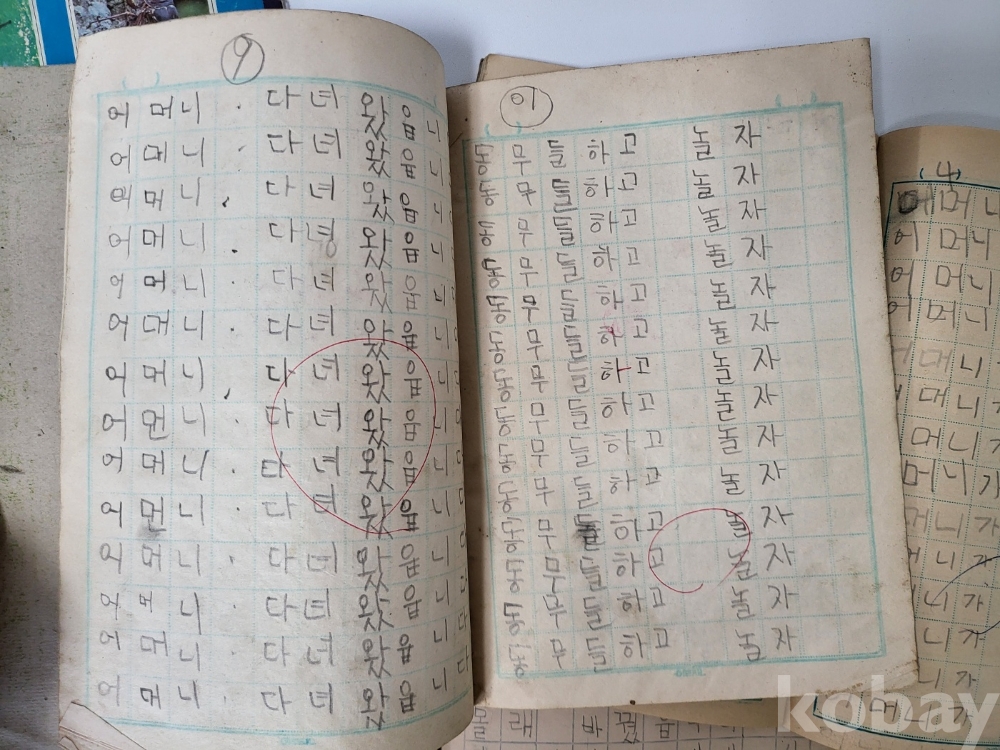 9
어 머 니 . 다 녀 왔 읍 니
어 머 니 . 다 녀 왔 읍 니
어 머 니 . 다 녀 왔 읍 니
어 머 니 . 다 녕 왔 읍 니
어 머 니 . 다 녀 왔 읍 니 다
어 머 니 . 다 녀 왔 읍 니 다
어 머 니 . 다 녀 왔 읍 니 다
어 먼 니 . 다 녀 왔 읍 니 다
어 머 니 . 다 녀 왔 읍 니 다
어 먼 니 . 다 녀 왔 읍 니 다
어 머 니 . 다 녀 왔 읍 니 다
어 머 니 . 다 녀 왔 읍 니 다
어 머 니 . 다 녀 왔 읍 니 다
어 머 니 . 다 녀 왔 읍 니 다
01
동 무 들 하 고 놀 자
동 무 들 하 고 놀 자
동 무 들 하 고 놀 자
동 무 들 하 고 놀 자
동 무 들 하 고 놀 자
동 무 들 하 고 놀 자
동 무 들 하 고 놀 자
동 무 들 하 고 놀 자
동 무 들 하 고 놀 자
동 무 들 하 고 놀 자
동 무 들 하 고 놀 자
동 무 들 하 고 놀 자
동 무 들 하 고 놀 자
동 무 들 하 고 놀 자
4
어 머 니
어 머 니
어 머 니
어 머 니
머 니
머 니
머 니 가
머 니 가
머 니 가
머 니 가
니 가
니 가
니 가
머 니 가
래 바 꿨 읍
kobay